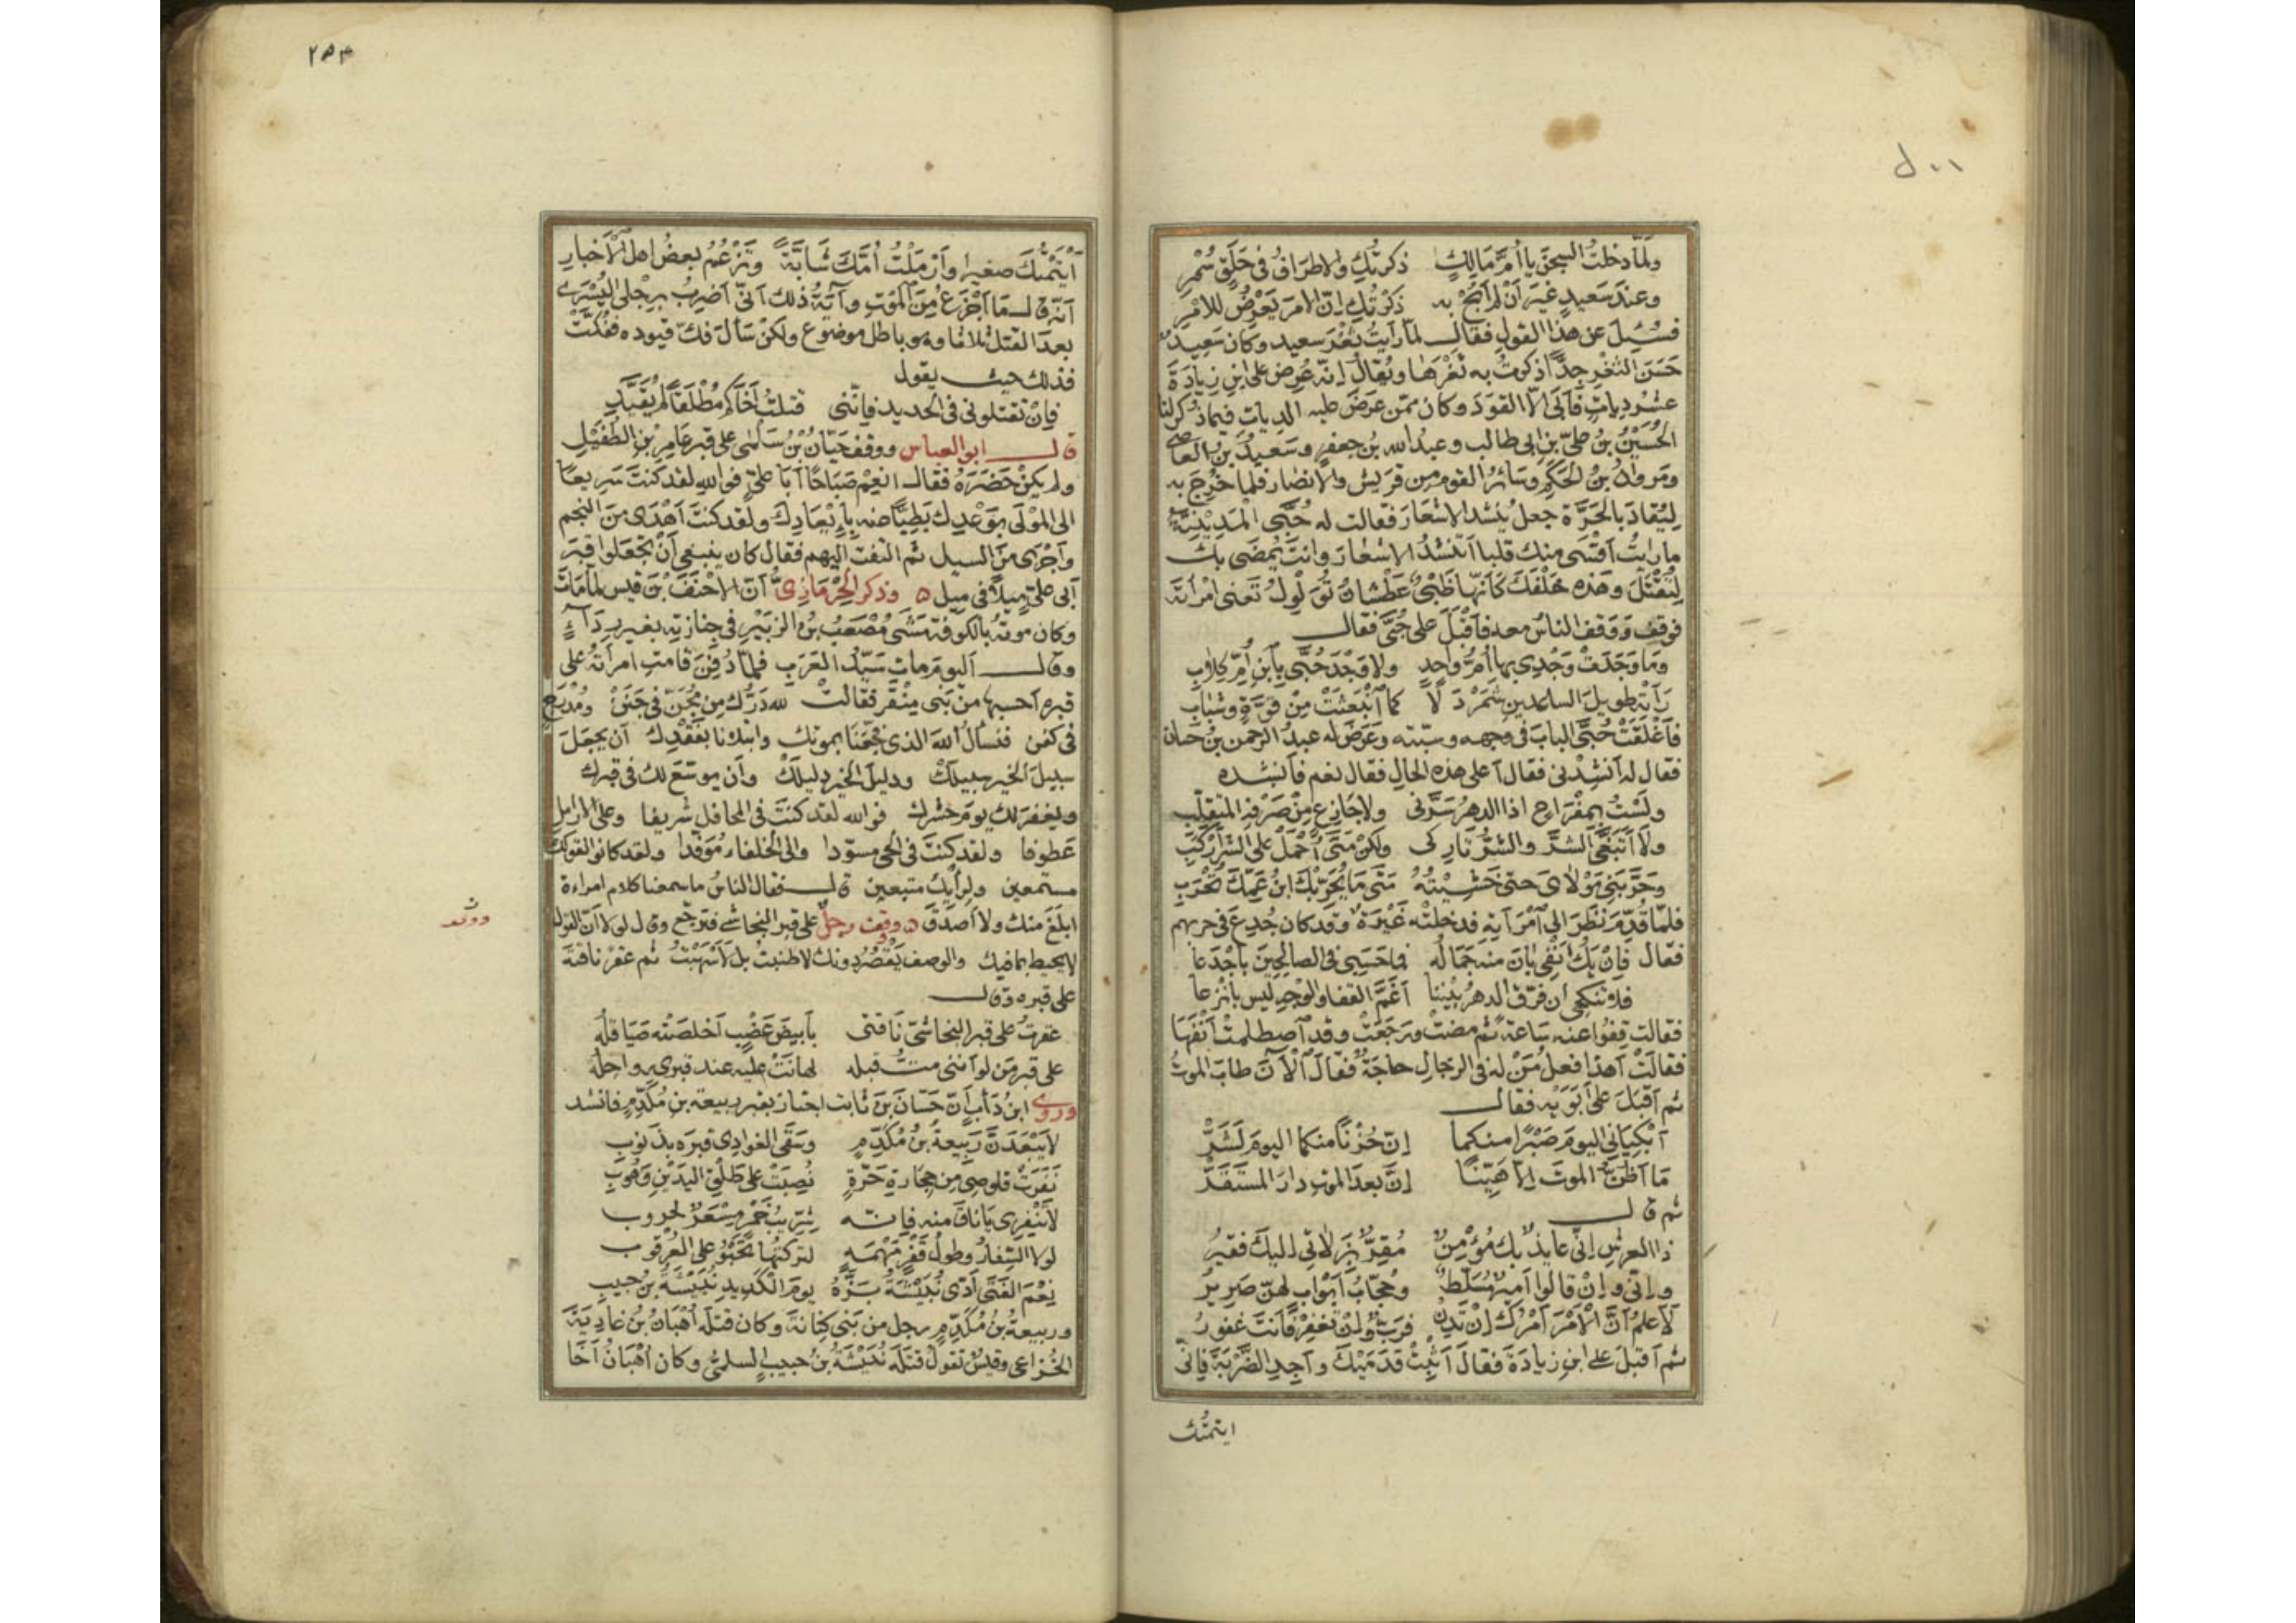 ولَمَّا دخلتُ السجنَ يا أمَّ مَالِكٍ ذكرتُكِ والاطرافُ فى حَلَقٍ سُمْرِ
وعندَ سَعيدٍ غيرَ أنْ لم أَبُحْ به ذكَرْتُكِ إنّ الامرَ يَعْرِضُ للامْرِ
فسُئِلَ عن هذا القولِ فقال لمّا رأيتُ ثَغْرَ سعيد وكان سَعيدٌ
حَسَنَ الثغْرِ جدًّا ذكرتُ به ثغْرَها ويُقالُ إنّه عُرِضَ على ابنِ زِيادَةَ
عشرُ دِياتٍ فأبَى الّا القَوَدَ وكان ممّن عَرَضَ عليه الدِياتِ فيما ذُكر لنا
الحُسَيْنُ بنُ علىّ بنِ ابى طالب وعبدُ الله بنُ جعفرٍ وسَعيدُ بنُ العاصى
ومَروانُ بنُ الحَكَمِ وسَائرُ القومِ من قريش والانصار فلما خُرِجَ به
لِيُقادَ بالحَرَّة جعل يُنشد الاشعارَ فقالت له حُبَّى المَدِينِيَّةُ
ما رايتُ اقْسَى منك قلبا أتُنْشدُ الاشعارَ وانتَ يُمْضَى بك
لِتُقتَلَ وهذه خَلْفَكَ كأنّها ظَبْىٌ عَطْشانُ تُوَلْوِلُ تَعنى امْرأتَه
فوقف ووقف الناسُ معه فأقْبَلَ على حُبَّى فقال
وما وَجَدَتْ وَجْدى بها أُمُّ واحِدٍ ولا وَجْدَ حُبَّى بِابنِ أُمِّ كِلابِ
رَأتْه طويلَ الساعدينِ شَمَرْدَلًا كما انْبَعَثَتْ مِنْ قوّةٍ وشَبابِ
فأغْلَقَتْ حُبَّى البابَ فى وجهه وسبّته وعَرَضَ له عبدُ الرحمن بنُ حسان
فقال له أنشِدْنى فقال أعلى هذه الحالِ فقال نعم فأنشده
ولَسْتُ بمِفْرَاحٍ اذا الدهرُ سَرَّنى ولا جَازِعٍ مِنْ صَرْفِه المتقلّبِ
ولا أتَبَغَّى الشَرَّ والشرُّ تَارِكى ولكنْ مَتَى أُحْمَلْ على الشرّ أرْكَبِ
وحَرَّبَنِى مَوْلاىَ حتى خَشِيْتُهُ مَتَى مَا يُحَرِّبْكَ ابنُ عَمِّكَ تَحْرَبِ
فلمّا قُدِّمَ نظَرَ إلى امْرَأتِه فدخلتْه غَيْرَةٌ وقد كان جُدِعَ فى حربهم
فقال فإنْ يَكُ أنْفِى بَانَ منه جَمَالُه فما حَسَبِى فى الصالحينَ بأجْدَعا
فلا تنكحى ان فرّق الدهرُ بَيْننا أغَمَّ القفا والوَجْهِ ليس بأنزعا
فقالت قِفُوا عنه سَاعة ثم مضتْ ورَجَعَتْ وقد اصطلمتْ أنْفَهَا
فقالَتْ أهذا فعلُ مَنْ له فى الرجالِ حاجَةٌ فقالَ الْآنَ طابَ الموتُ
ثم أقبَلَ على أبَوَيْه فقال
أبْكِيَانِى اليومَ صَبْرًا منكما إنّ حُزْنًا منكما اليومَ لَشَرّْ
مَا أظنّ الموتَ إلّا هَيّنًا إنَّ بعدَ الموتِ دارَ المستَقَرّْ
ثم قال
ذا العرشِ إنّى عايذٌ بك مُؤْمِنٌ مُقِرٌّ بِزَلّاتى اليكَ فقيرُ
وإنّى وإنْ قالوا أميرٌ مُسَلّطٌ وحُجّابُ أبْوابٍ لهنّ صَرِيرُ
لأعلمُ أنَّ الأمْرَ أمْرُكَ إنْ تَدِنْ فرَبٌّ وإنْ تغفِرْ فأنتَ غفورُ
ثم أقبلَ على ابنِ زيادَةَ فقالَ أثبِتْ قدَمَيْكَ وأجِدِ الضَّرْبَةَ فإنّى
ايتمتك
٢٥٤
أيْتَمْتُكَ صغيرا وأرْمَلْتُ أُمَّكَ شَابَّةً وتَزْعُمُ بعضُ اهلِ الأخبارِ
أنّه قال مَا أجْزَعُ مِنَ المَوْتِ وآيَةُ ذلك أنّى أضرِبُ برِجْلى اليُسْرَى
بعدَ القتل ثلاثا وهو باطل موضوع ولكنْ سَألَ فكَّ قيوده ففُكَّتْ
فذلك حيث يقول
فإنْ تقتلونى فى الحديد فإنّنى قتلتُ أخاكم مُطْلَقًا لم يُقَيَّدِ
قال ابو العباس ووقف حَيّانُ بْنُ سَلمَى على قبر عَامِرْ بْنِ الطفَيْلِ
ولم يكنْ حَضَرَهُ فقال انعِمْ صَبَاحًا أبَا علىٍّ فوالله لقد كنتَ سَريعًا
الى المَوْلَى بوَعْدِك بَطِيًّا عنه بإيْعَادِكَ ولقد كنتَ أهْدَى من النجم
وأجْرَى من السيل ثم التفت اليهم فقال كان ينبغى أنْ تجْعَلوا قبرَ
أبى علىّ مِيلًا فى ميل ٥ وذكر الحِرْمَازِىُّ أنّ الاحْنَفَ بْنَ قيس لمّا مَاتَ
وكان موتُه بالكوفة مَشَى مُصْعَبُ بنُ الزبَيْرِ فى جنازتِه بغير رِدَآءٍ
وقال اليومَ ماتَ سَيّدُ العَرَبِ فلمّا دُفِنَ قامتِ امرأتُه على
قبره أحسبها من بَنى مِنْقَر فقالتْ لله دَرُّكَ مِن مُجَنّ فى جَنَنْ ومُدْرَجٍ
فى كفن فنسألُ اللهَ الذى فجَعَنَا بموتك وابتلانا بفقْدِك أن يجعَلَ
سبيلَ الخير سبيلَكْ ودليلَ الخيرِ دليلَكْ وأن يوسّعَ لك فى قبرك
ويغفرَ لك يومَ حشرك فوالله لقد كنتَ فى المحافل شريفا وعلى الارامل
عَطوفا ولقد كنتَ فى الحىّ مسوّدا والى الخلفاء مُوفدا ولقد كانوا لقولك
مستمعين ولرأيك متبعين قال فقال الناسُ ما سمعنا كلام امراءة
ابلغَ منك ولا أصدَقَ ٥ ووقف رجلٌ على قبر النجاشى فترجّع وقال لولا أنّ القول
لا يحيط بما فيك والوصف يَقْصُرُ دونك لاطنبتُ بل لأسْهَبْتُ ثم عقرَ ناقته
على قبره وقال
عقرتُ على قبر النجاشىّ نَاقتى بأبيضَ عَضْبٍ أخلصَتْه صَيَاقِلُه
على قبرِ مَن لو أننى متُّ قبله لهانَتْ عليه عند قبرى رواحِلُه
وروى ابنُ دَأبٍ أنّ حَسّانَ بنَ ثابت اجتاز بقبر ربيعة بنِ مُكَدَّمٍ فانشد
لا يَبْعَدَنَّ رَبيعةُ بنُ مُكَدَّمٍ وسَقَى الغوادِى قبرَه بذَنوبِ
نَفَرَتْ قلوصِى مِن حِجَارةِ حَرَّةٍ نُصِبَتْ على طَلْقِ اليَدَيْنِ وَهُوبِ
لا تَنْفِرى يَا ناقَ منه فإنّه شِرّيبُ خَمْرٍ مِسْعَرٌ لحروب
لولا السِّفارُ وطولُ قَفْرٍ مَهْمَهٍ لتركتُها تَحْبُو على العُرْقوب
نِعْمَ الفَتَى أدّى نُبَيْشَةُ بَزَّهُ يومَ الكَدِيدِ نُبَيْشَةُ بنُ حبيبِ
وربيعةُ بنُ مُكَدَّمٍ رجل من بَنى كِنانَة وكان قتلَه أُهْبَانُ بنُ غادِيَةَ
الخُزاعى وقيسٌ تقولُ قتَلَه نُبَيْشَةُ بنُ حبيبٍ السلمىّ وكان أُهْبَانُ أخَا
ووقف